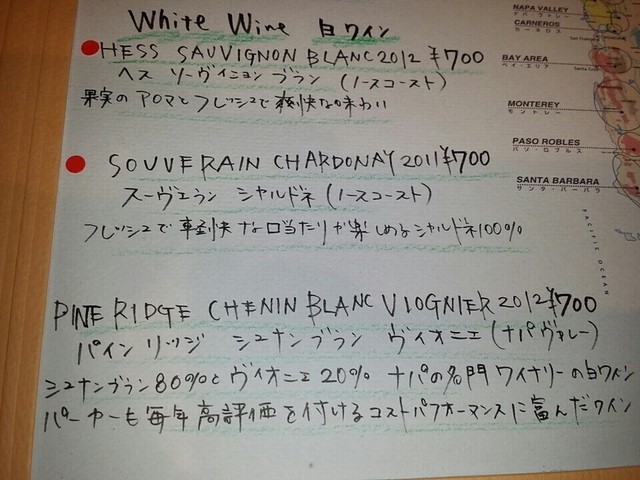 White Wine 白ワイン
HESS SAUVIGNON BLANC 2012 ¥700
ヘス ソーヴィニョン ブラン (ノースコースト)
果実のアロマとフレッシュで爽快な味わい
SOUVERAIN CHARDONAY 2011 ¥700
スーヴェラン シャルドネ (ノースコースト)
フレッシュで軽快な口当たりが楽しめるシャルドネ100%
PINE RIDGE CHENIN BLANC VIOGNIER 2012 ¥700
パイン リッジ シュナンブラン ヴィオニエ (ナパヴァレー)
シュナンブラン80%とヴィオニエ20% ナパの名門ワイナリーの白ワイン
パーカーも毎年高評価を付けるコストパフォーマンスに富んだワイン
NAPA VALLEY
ナパ・ヴァレー
CARNEROS
カーネロス
BAY AREA
ベイ・エリア
MONTEREY
モントレー
PASO ROBLES
パソ・ロブルス
SANTA BARBARA
サンタ・バーバラ
PACIFIC OCEAN